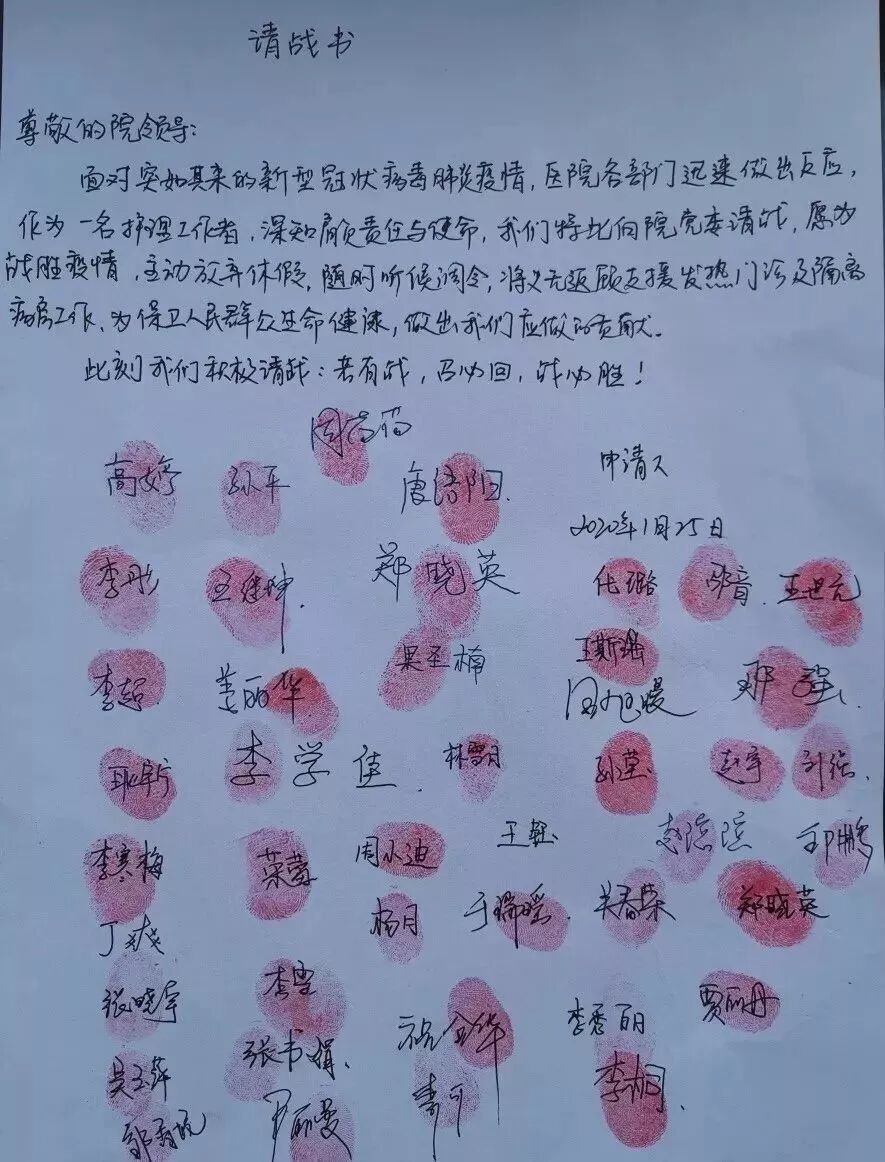 请战书
尊敬的院领导：
面对突如其来的新型冠状病毒肺炎疫情，医院各部门迅速做出反应，
作为一名护理工作者，深知肩负责任与使命，我们特此向院党委请战，愿为
战胜疫情，主动放弃休假，随时听候调令，将义无返顾支援发热门诊及隔离
病房工作、为保卫人民群众生命健康，做出我们应做的贡献。
此刻我们积极请战：若有战，召必回，战必胜！
高婷 孙平 唐语阳 申请人
2020年1月25日
李彤 王继坤 郑晓英
李超 姜丽华 王斯瑶
李学佳 林雪月 孙莹 赵宇
李寒梅 周小迪 王钰 赵滨滨 邹鹏
丁爽 杨月 于瑞瑶 关春荣 郑晓英
张晓宇 李雪 李秀丽 贾丽丹
吴玉萍 张书娟
李可